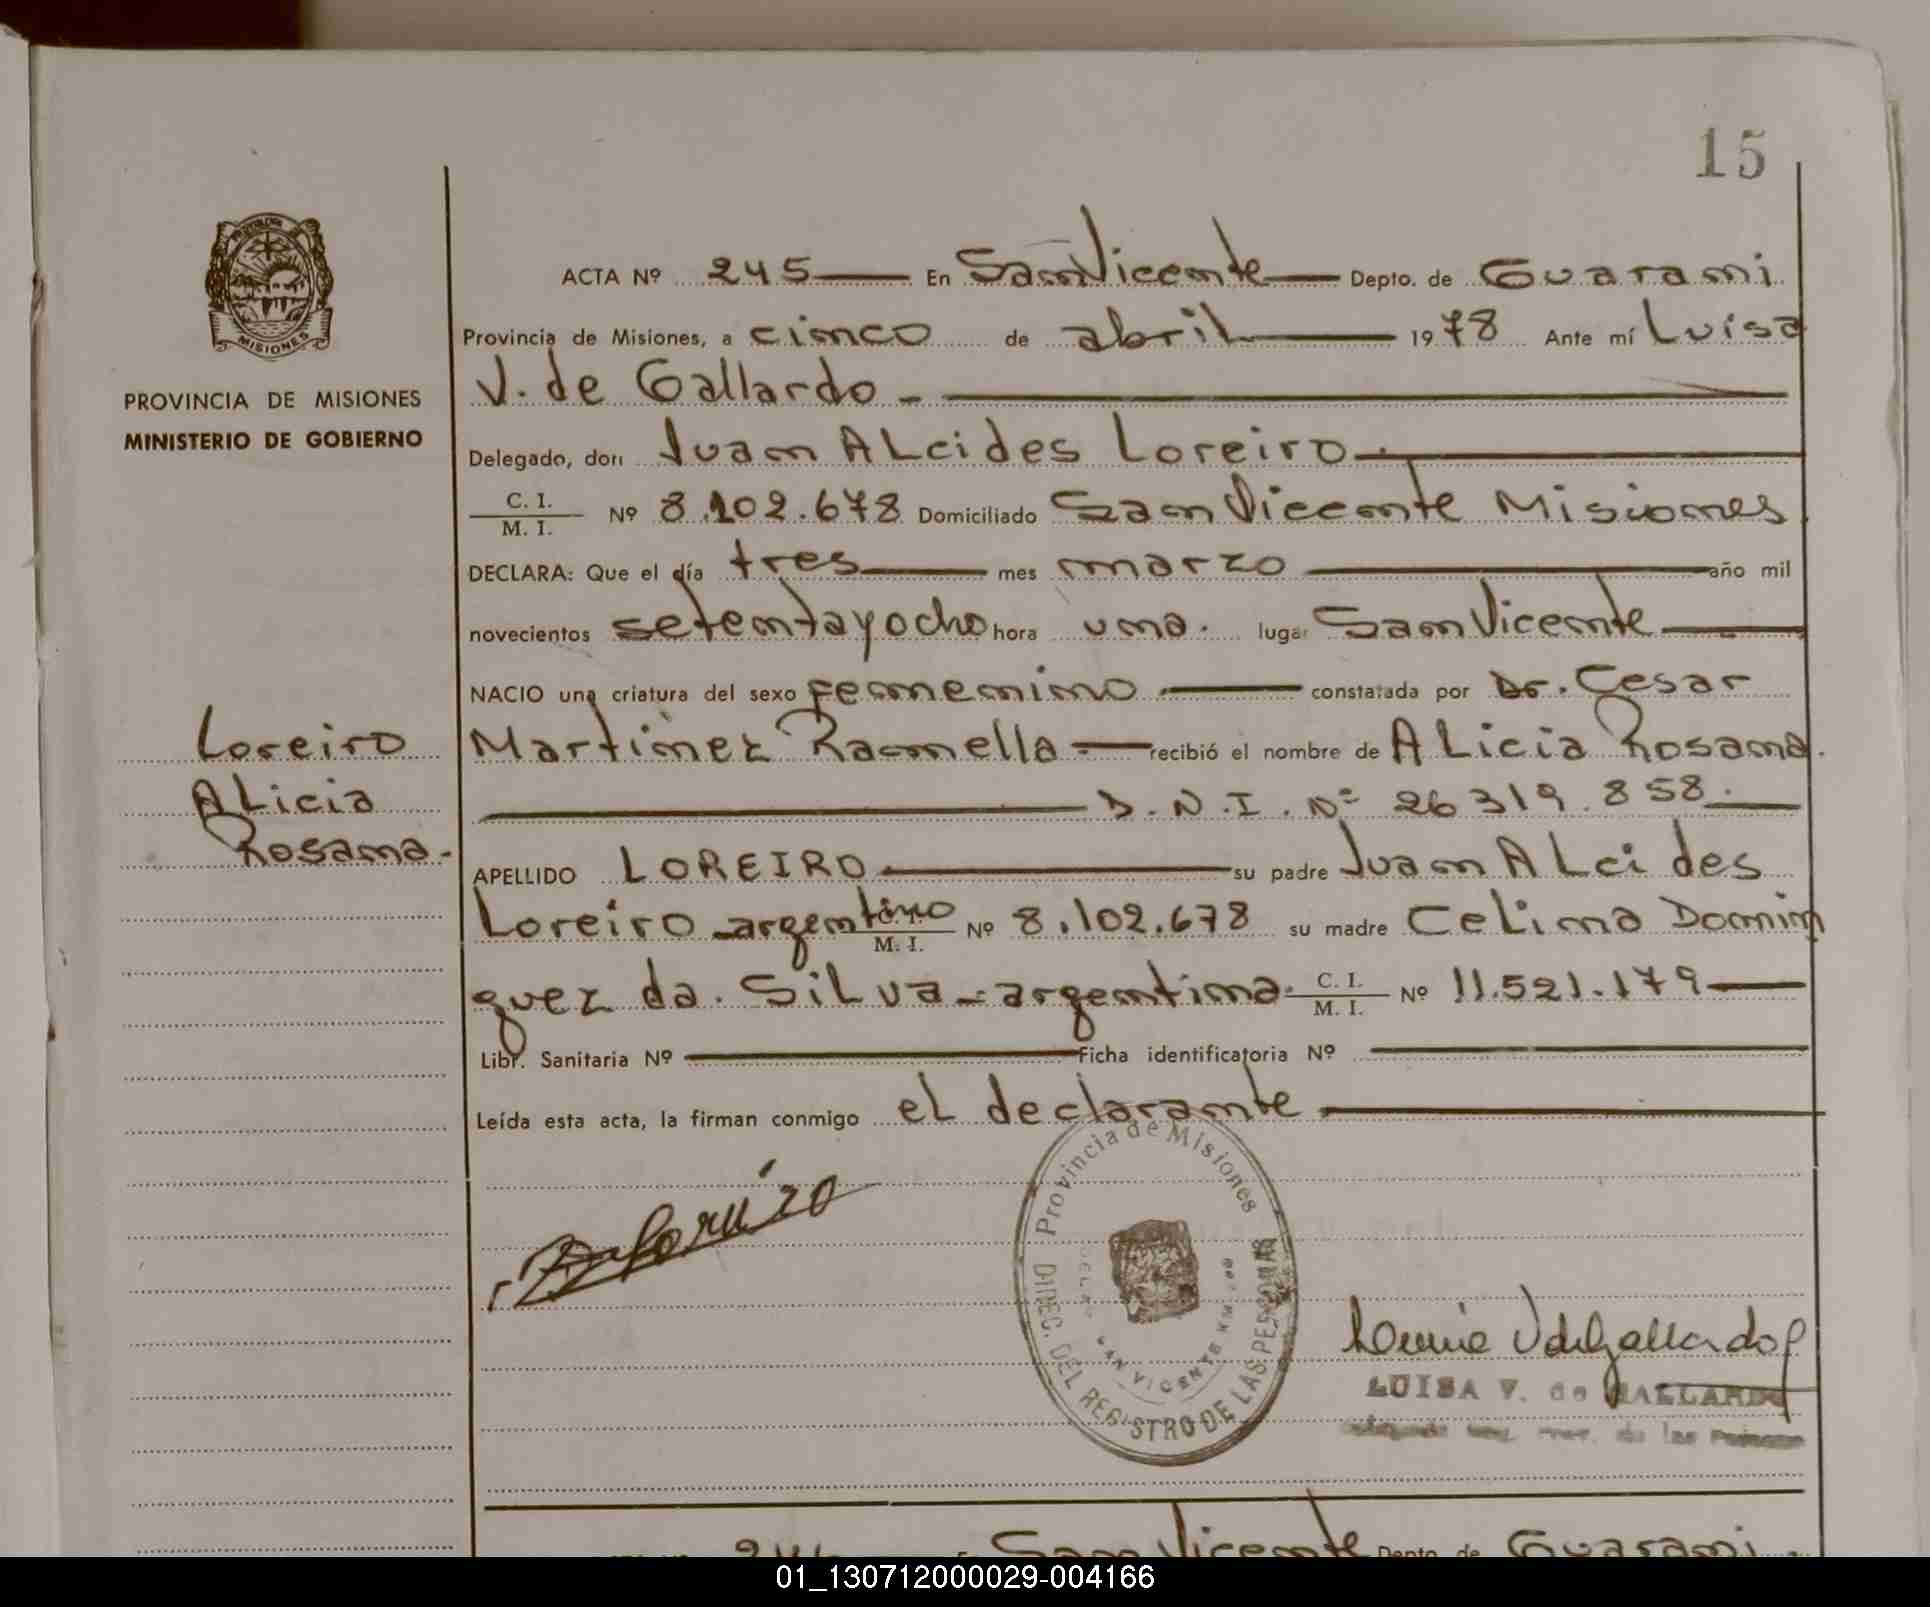 15
ACTA Nº 245 En San Vicente Depto. de Guarani
Provincia de Misiones, a cinco de abril 1978 Ante mí Luisa
V. de Gallardo -
Delegado, don Juan Alcides Loreiro.
C. I.
M. I. Nº 8.102.678 Domiciliado San Vicente Misiones
DECLARA: Que el día tres mes marzo año mil
novecientos setentayocho hora una. lugar San Vicente
NACIO una criatura del sexo femenino constatada por Dr. Cesar
Martinez Ramella recibió el nombre de Alicia Rosana.
D.N.I. Nº 26319.858.
APELLIDO LOREIRO su padre Juan Alcides
Loreiro - argentino C. I.
M. I. Nº 8.102.678 su madre Celina Domin
guez da. Silva - argentina. C. I.
M. I. Nº 11.521.179
Libr. Sanitaria Nº Ficha identificatoria Nº
Leída esta acta, la firman conmigo el declarante
MISIONES
PROVINCIA DE MISIONES
MINISTERIO DE GOBIERNO
Loreiro
Alicia
Rosana.
Provincia de Misiones
DIREC. DEL REGISTRO DE LAS PERSONAS
SAN VICENTE
LUISA V. de GALLARDO
de las
San Vicente Depto. de Guarani
01_130712000029-004166